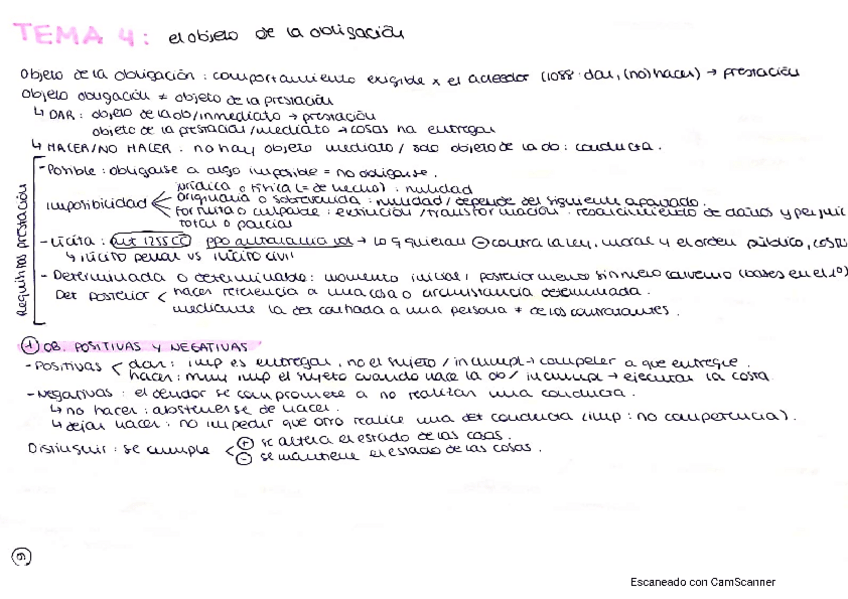 TEMA 4: el objeto de la obligación
Objeto de la obligación: comportamiento exigible x el acreedor (1088: dar, (no) hacer) → prestación
Objeto obligación ≠ objeto de la prestación
↳ DAR: objeto de la ob/inmediato → prestación
objeto de la prestación/mediato → cosas ha entregar
↳ HACER/NO HACER. no hay objeto mediato/ solo objeto de la ob: conducta.
Requisitos prestación
- Posible: obligarse a algo imposible = no obligarse.
Imposibilidad
jurídica o física (= de hecho): nulidad
originaria o sobrevenida: nulidad/depende del siguiente apartado.
fortuita o culpable: extinción/transformación: resarcimiento de daños y perjuic
total o parcial
- Lícita: art 1255 CC ppo autonomía vol → lo q quieran ⊖ contra la ley, moral y el orden público, costu
↳ ilícito penal vs ilícito civil
- Determinada o determinable: momento inicial, posteriormente sin nuevo convenio (bases en el 1º)
Det posterior < hacer referencia a una cosa o circunstancia determinada.
mediante la det confiada a una persona ≠ de los contratantes.
① OB. POSITIVAS Y NEGATIVAS
- Positivas < dar: imp es entregar, no el sujeto/incumpl → compeler a que entregue.
hacer: muy imp el sujeto cuando nace la ob/ incumpl → ejecutar la costa
- Negativas: el deudor se compromete a no realizar una conducta.
↳ no hacer: abstenerse de hacer.
↳ dejar hacer: no impedir que otro realice una det conducta (imp: no competencia).
Distinguir: se cumple < ⊕ se altera el estado de las cosas.
⊖ se mantiene el estado de las cosas.
Escaneado con CamScanner